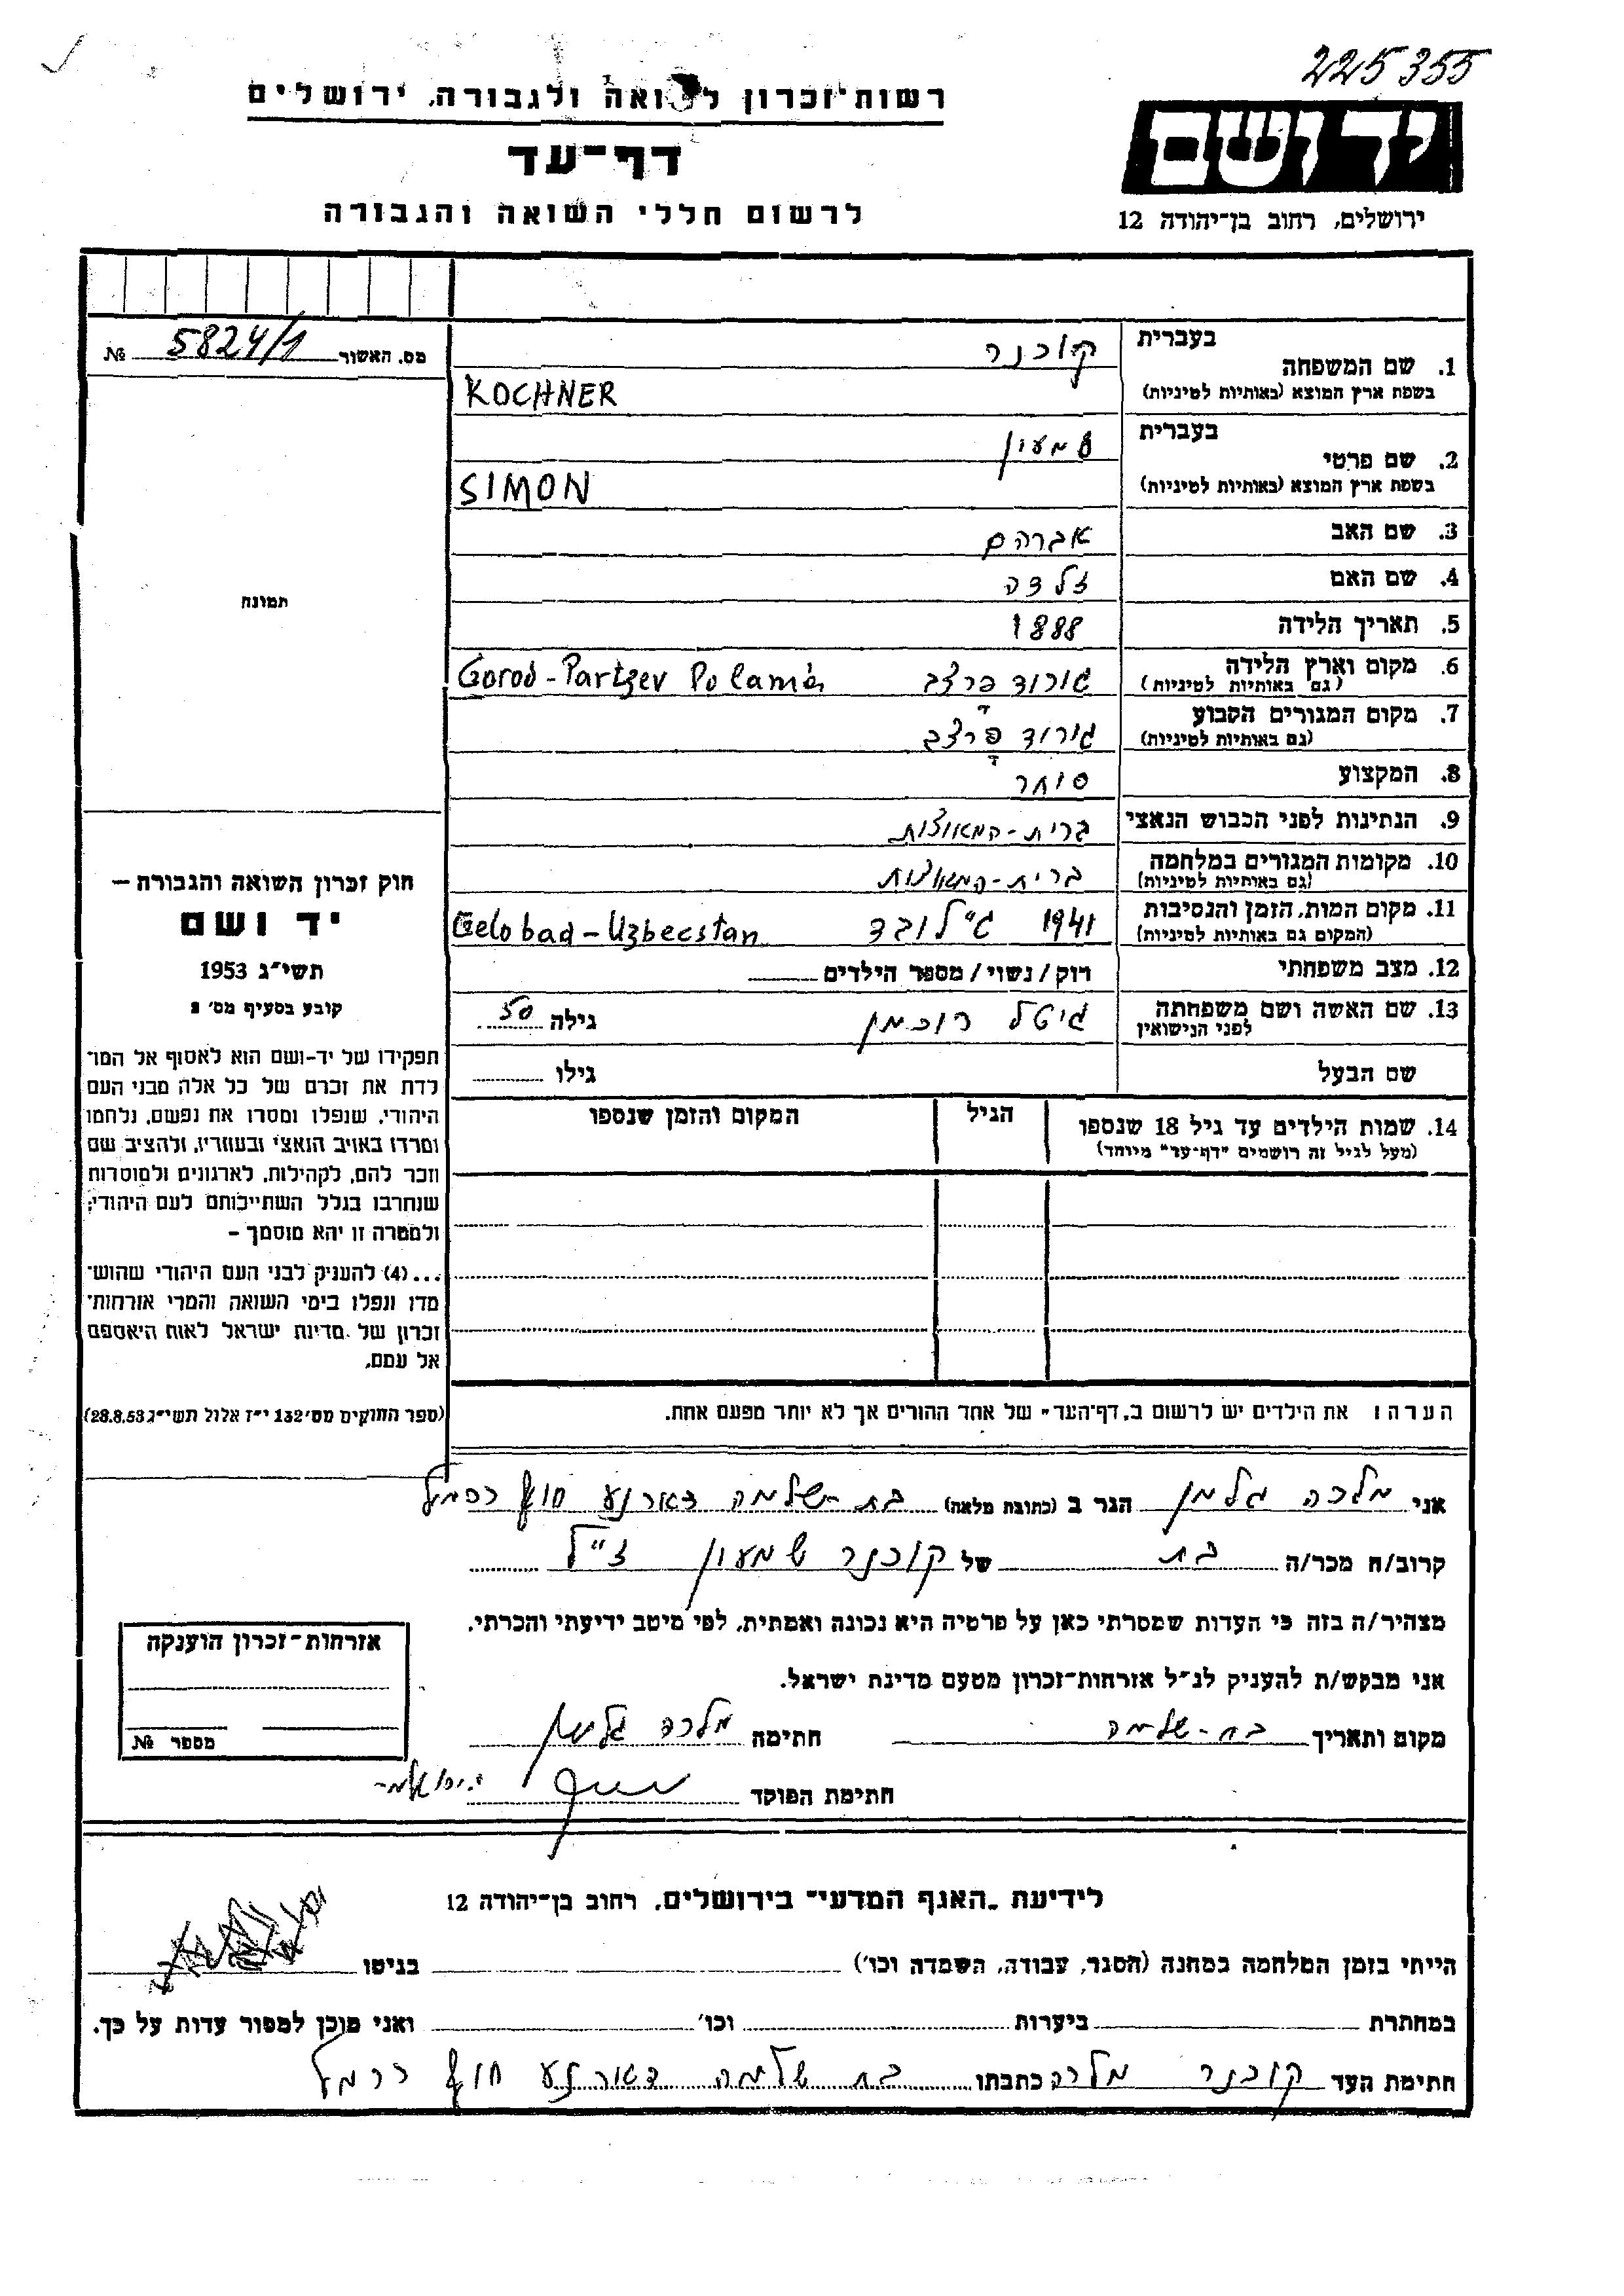 225355
רשות־זכרון לשואה ולגבורה, ירושלים
דף־עד
לרשום חללי השואה והגבורה
יד ושם
ירושלים, רחוב בן־יהודה 12
מס. האשור 5824/1 №
בעברית
1. שם המשפחה קוכנר
בשפת ארץ המוצא (באותיות לטיניות) KOCHNER
בעברית
2. שם פרטי שמעון
בשפת ארץ המוצא (באותיות לטיניות) SIMON
3. שם האב אברהם
4. שם האם זלדה
5. תאריך הלידה 1888
6. מקום וארץ הלידה גורוד פרצב Gorod-Partzev
(גם באותיות לטיניות)
7. מקום המגורים הקבוע גורוד פרצב
(גם באותיות לטיניות)
8. המקצוע סוחר
9. הנתינות לפני הכבוש הנאצי ברית-המאוצות
10. מקומות המגורים במלחמה ברית-המאוצות
(גם באותיות לטיניות)
11. מקום המות, הזמן והנסיבות 1941 ג'לובד Gelobad-Uzbecstan
(המקום גם באותיות לטיניות)
12. מצב משפחתי רוק/נשוי/מספר הילדים
13. שם האשה ושם משפחתה גיטל רוכמן גילה 50
לפני הנישואין
שם הבעל גילו
14. שמות הילדים עד גיל 18 שנספו הגיל המקום והזמן שנספו
(מעל לגיל זה רושמים "דף־עד" מיוחד)
הערה: את הילדים יש לרשום ב„דף־העד" של אחד ההורים אך לא יותר מפעם אחת.
תמונה
חוק זכרון השואה והגבורה –
יד ושם
תשי"ג 1953
קובע בסעיף מס' 2
תפקידו של יד-ושם הוא לאסוף אל המו־
לדת את זכרם של כל אלה מבני העם
היהודי, שנפלו ומסרו את נפשם, נלחמו
ומרדו באויב הנאצי ובעוזריו, ולהציב שם
וזכר להם, לקהילות, לארגונים ולמוסדות
שנחרבו בגלל השתייכותם לעם היהודי;
ולמטרה זו יהא מוסמך –
...(4) להעניק לבני העם היהודי שהוש־
מדו ונפלו בימי השואה והמרי אזרחות־
זכרון של מדינת ישראל לאות היאספם
אל עמם.
(ספר החוקים מס' 132 י"ז אלול תשי"ג 28.8.53)
אני מלכה גלמן הגר ב (כתובת מלאה) בת-שלמה דאר נע חוף כרמל
קרוב/ה מכר/ה בת של קוכנר שמעון ז"ל
מצהיר/ה בזה כי העדות שמסרתי כאן על פרטיה היא נכונה ואמתית, לפי מיטב ידיעתי והכרתי.
אני מבקש/ת להעניק לנ"ל אזרחות־זכרון מטעם מדינת ישראל.
מקום ותאריך בת-שלמה חתימה מלכה גלמן
חתימת הפוקד
אזרחות־זכרון הוענקה
מספר №
לידיעת „האגף המדעי" בירושלים, רחוב בן־יהודה 12
הייתי בזמן המלחמה במחנה (הסגר, עבודה, השמדה וכו') בגיטו
במחתרת ביערות וכו' ואני מוכן למסור עדות על כך.
חתימת העד קוכנר מלכה כתבתו בת שלמה דאר נע חוף כרמל